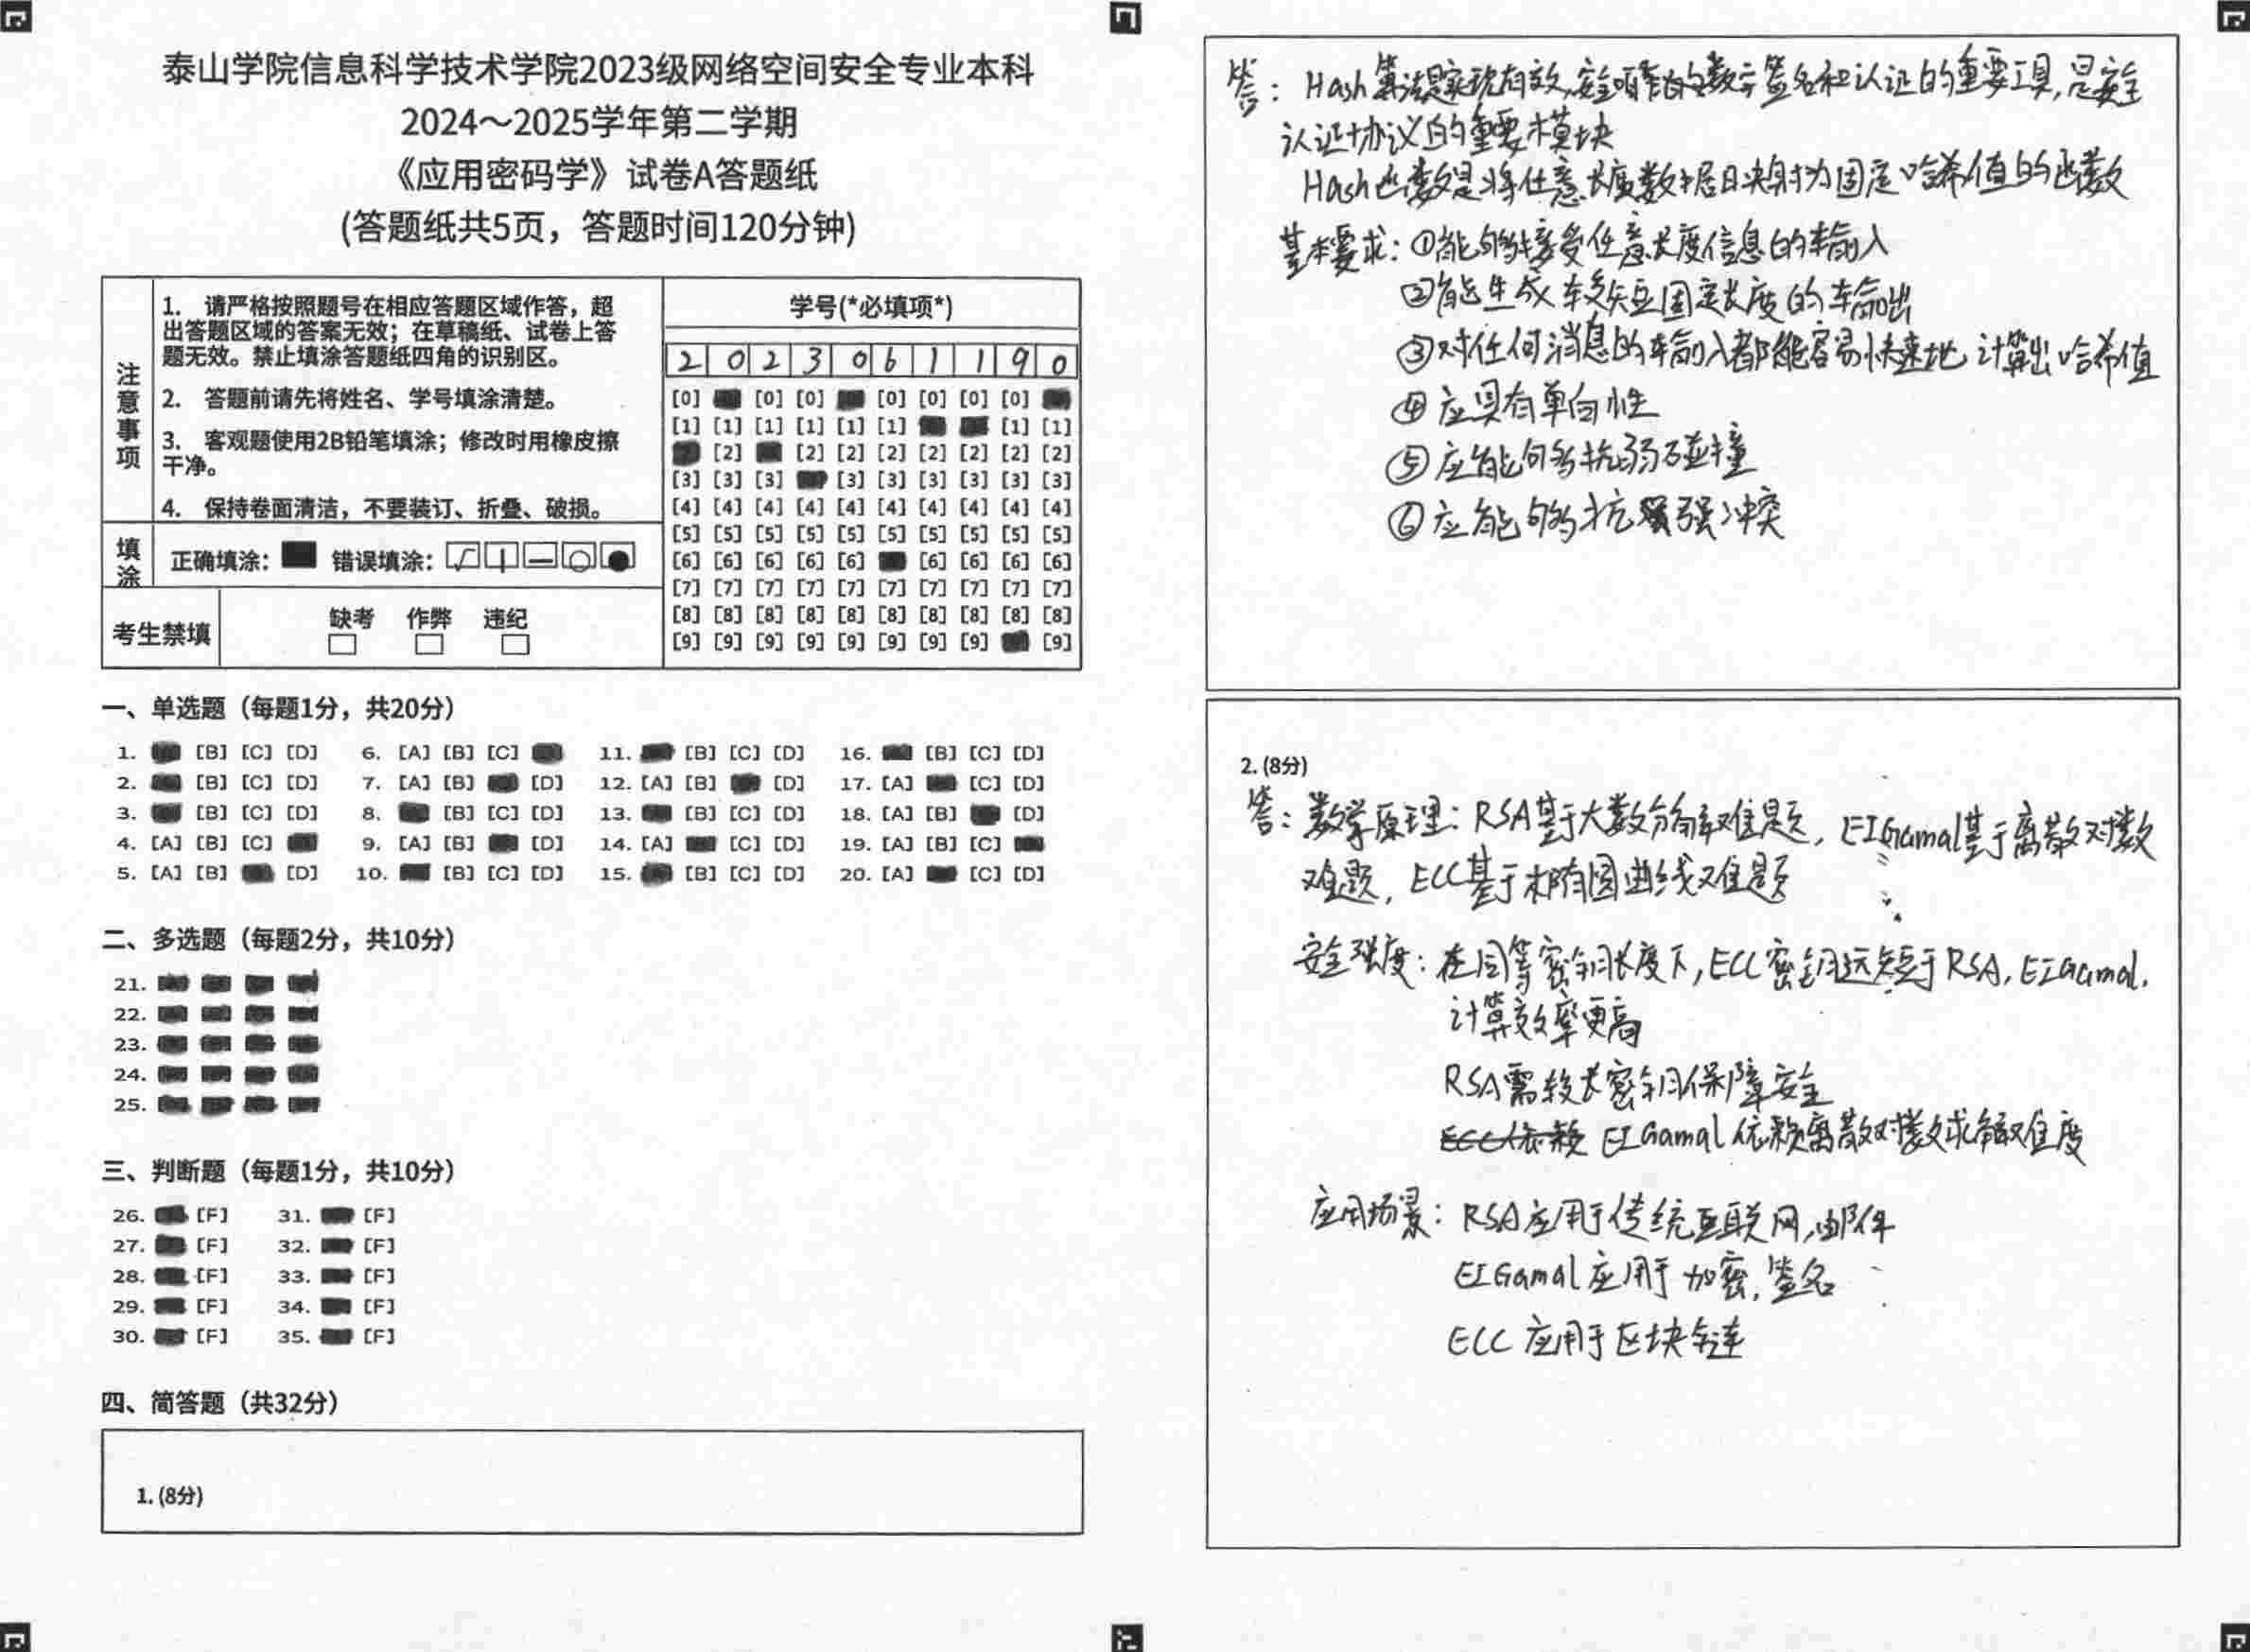 泰山学院信息科学技术学院2023级网络空间安全专业本科
2024～2025学年第二学期
《应用密码学》试卷A答题纸
(答题纸共5页，答题时间120分钟)
注意事项
1. 请严格按照题号在相应答题区域作答，超
出答题区域的答案无效；在草稿纸、试卷上答
题无效。禁止填涂答题纸四角的识别区。
2. 答题前请先将姓名、学号填涂清楚。
3. 客观题使用2B铅笔填涂；修改时用橡皮擦
干净。
4. 保持卷面清洁，不要装订、折叠、破损。
填涂 正确填涂： 错误填涂：
考生禁填 缺考 作弊 违纪
学号(*必填项*)
2 0 2 3 0 6 1 1 9 0
[0] [0] [0] [0] [0] [0] [0]
[1] [1] [1] [1] [1] [1] [1] [1]
[2] [2] [2] [2] [2] [2] [2] [2]
[3] [3] [3] [3] [3] [3] [3] [3] [3]
[4] [4] [4] [4] [4] [4] [4] [4] [4] [4]
[5] [5] [5] [5] [5] [5] [5] [5] [5] [5]
[6] [6] [6] [6] [6] [6] [6] [6] [6]
[7] [7] [7] [7] [7] [7] [7] [7] [7] [7]
[8] [8] [8] [8] [8] [8] [8] [8] [8] [8]
[9] [9] [9] [9] [9] [9] [9] [9] [9]
一、单选题（每题1分，共20分）
1. [B] [C] [D] 6. [A] [B] [C] 11. [B] [C] [D] 16. [B] [C] [D]
2. [B] [C] [D] 7. [A] [B] [D] 12. [A] [B] [D] 17. [A] [C] [D]
3. [B] [C] [D] 8. [B] [C] [D] 13. [B] [C] [D] 18. [A] [B] [D]
4. [A] [B] [C] 9. [A] [B] [D] 14. [A] [C] [D] 19. [A] [B] [C]
5. [A] [B] [D] 10. [B] [C] [D] 15. [B] [C] [D] 20. [A] [C] [D]
二、多选题（每题2分，共10分）
21.
22.
23.
24.
25.
三、判断题（每题1分，共10分）
26. [F] 31. [F]
27. [F] 32. [F]
28. [F] 33. [F]
29. [F] 34. [F]
30. [F] 35. [F]
四、简答题（共32分）
1. (8分)
答：Hash算法是实现有效、安全可靠的数字签名和认证的重要工具，是安全
认证协议的重要模块
Hash函数是将任意长度数据映射为固定哈希值的函数
基本要求：①能够接受任意长度信息的输入
②能生成较短固定长度的输出
③对任何消息的输入都能容易快速地计算出哈希值
④应具有单向性
⑤应能够抗弱碰撞
⑥应能够抗强冲突
2. (8分)
答：数学原理：RSA基于大数分解难题，ElGamal基于离散对数
难题，ECC基于椭圆曲线难题
安全强度：在同等密钥长度下，ECC密钥远短于RSA，ElGamal，
计算效率更高
RSA需较长密钥保障安全
ECC依赖 ElGamal依赖离散对数求解难度
应用场景：RSA应用于传统互联网，邮件
ElGamal应用于加密，签名
ECC应用于区块链